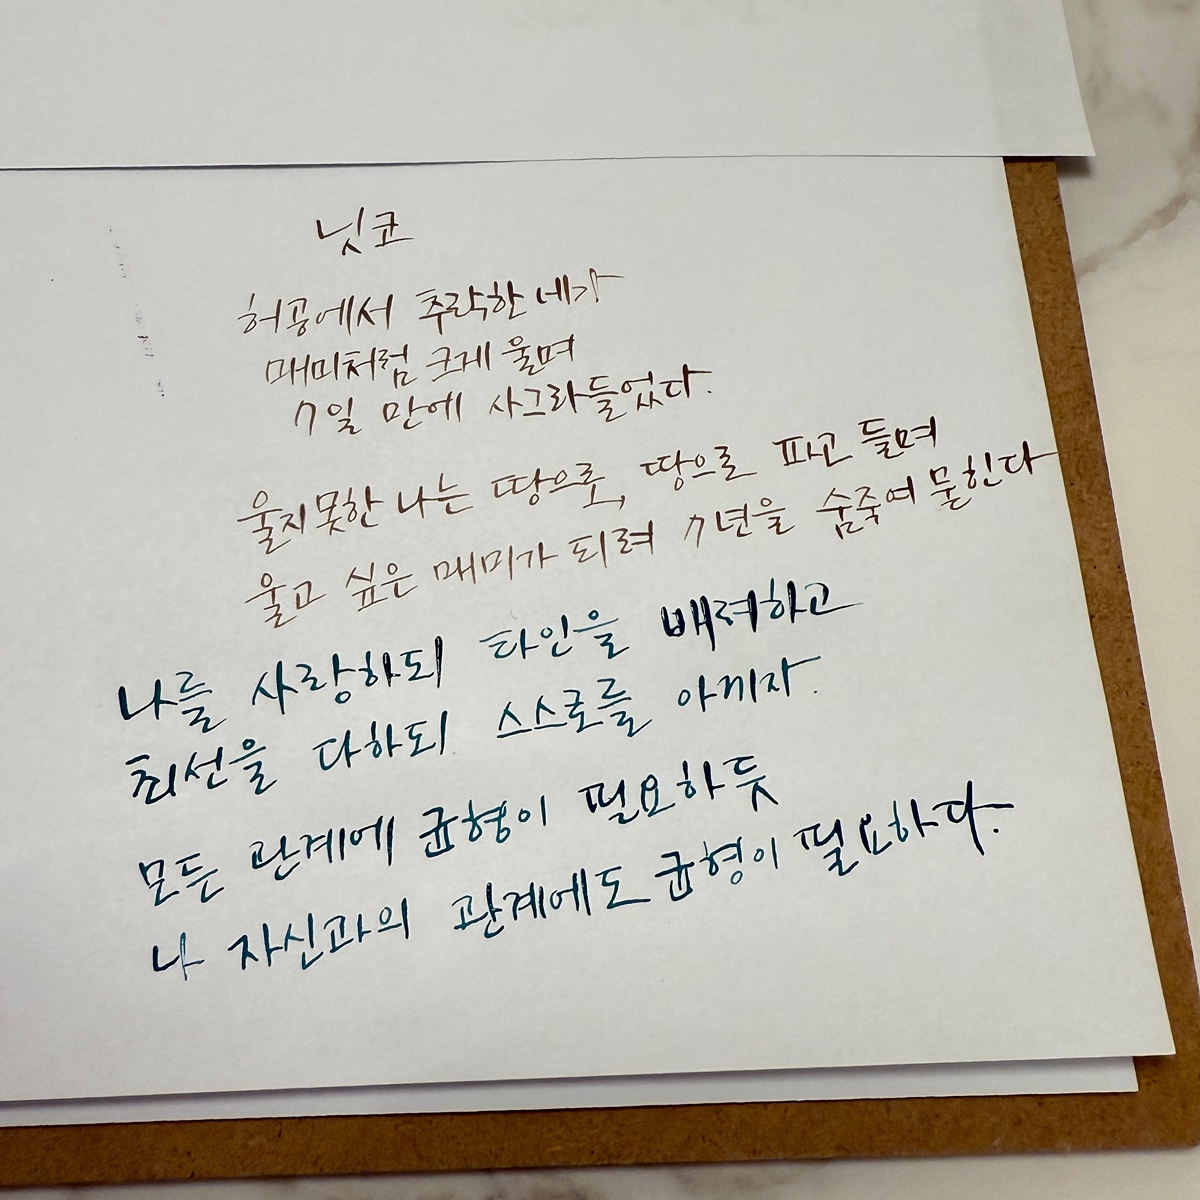 닛코
허공에서 추락한 네가
매미처럼 크게 울며
7일 만에 사그라들었다.
울지 못한 나는 땅으로, 땅으로 파고 들며
울고 싶은 매미가 되려 7년을 숨죽여 묻힌다
나를 사랑하되 타인을 배려하고
최선을 다하되 스스로를 아끼자.
모든 관계에 균형이 필요하듯
나 자신과의 관계에도 균형이 필요하다.